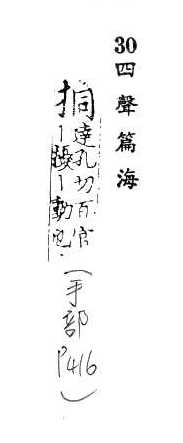 30 四聲篇海
挏
達孔切百官
丨擾丨動也.
(手部P416)